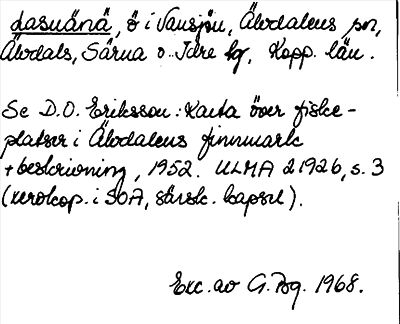 Lasuänä, ö i Vansjön, Älvdalens sn,
Älvdals, Särna o. Idre tg, Kopp. län.
Se D.O. Eriksson: Karta över fiske-
platser i Älvdalens finnmark
+ beskrivning, 1952. ULMA 21926, s. 3
(xerokop. i SOA, särsk. kapsel).
Exc. av G. Pg. 1968.